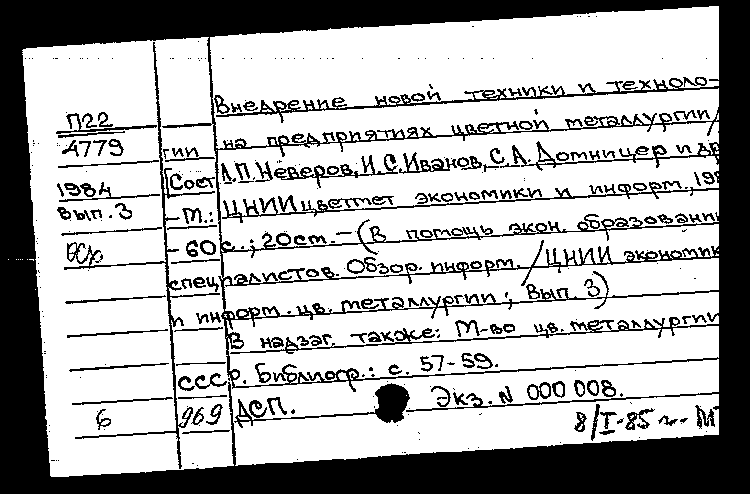 Внедрение новой техники и техноло-
П22
4779 гии на предприятиях цветной металлургии/
1984 [Сост. А.П.Неверов, И.С.Иванов, С.А.Домницер и др
Вып.3 – М.: ЦНИИцветмет экономики и информ., 198
– 60 с.; 20см. – (В помощь экон. образованию
специалистов. Обзор. информ. / ЦНИИ экономик
и информ. цв. металлургии; Вып. 3)
В надзаг. также: М-во цв. металлургии
СССР. Библиогр.: с. 57-59.
6 969 ДСП. Экз. N 000 008.
8/I-85